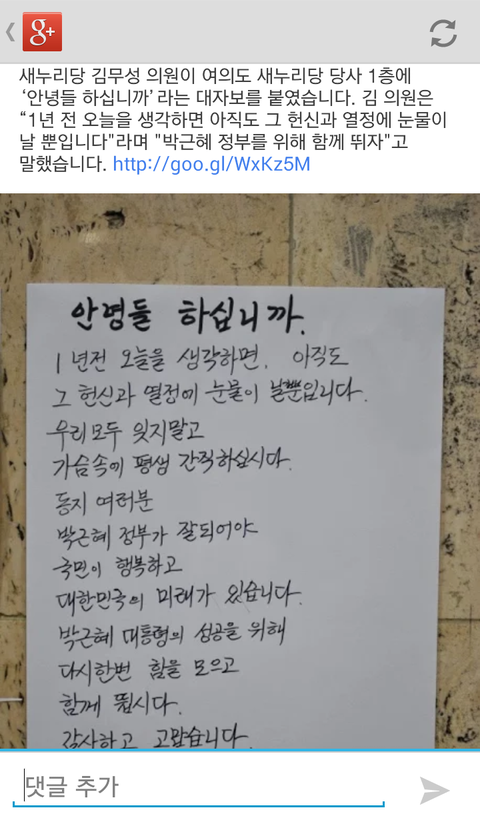 g+
새누리당 김무성 의원이 여의도 새누리당 당사 1층에
‘안녕들 하십니까’라는 대자보를 붙였습니다. 김 의원은
“1년 전 오늘을 생각하면 아직도 그 헌신과 열정에 눈물이
날 뿐입니다"라며 "박근혜 정부를 위해 함께 뛰자"고
말했습니다. http://goo.gl/WxKz5M
안녕들 하십니까.
1년전 오늘을 생각하면, 아직도
그 헌신과 열정에 눈물이 날뿐입니다.
우리모두 잊지말고
가슴속에 평생 간직하십시다.
동지 여러분
박근혜 정부가 잘되어야
국민이 행복하고
대한민국의 미래가 있습니다.
박근혜 대통령의 성공을 위해
다시한번 힘을 모으고
함께 뜁시다.
감사하고 고맙습니다.
댓글 추가